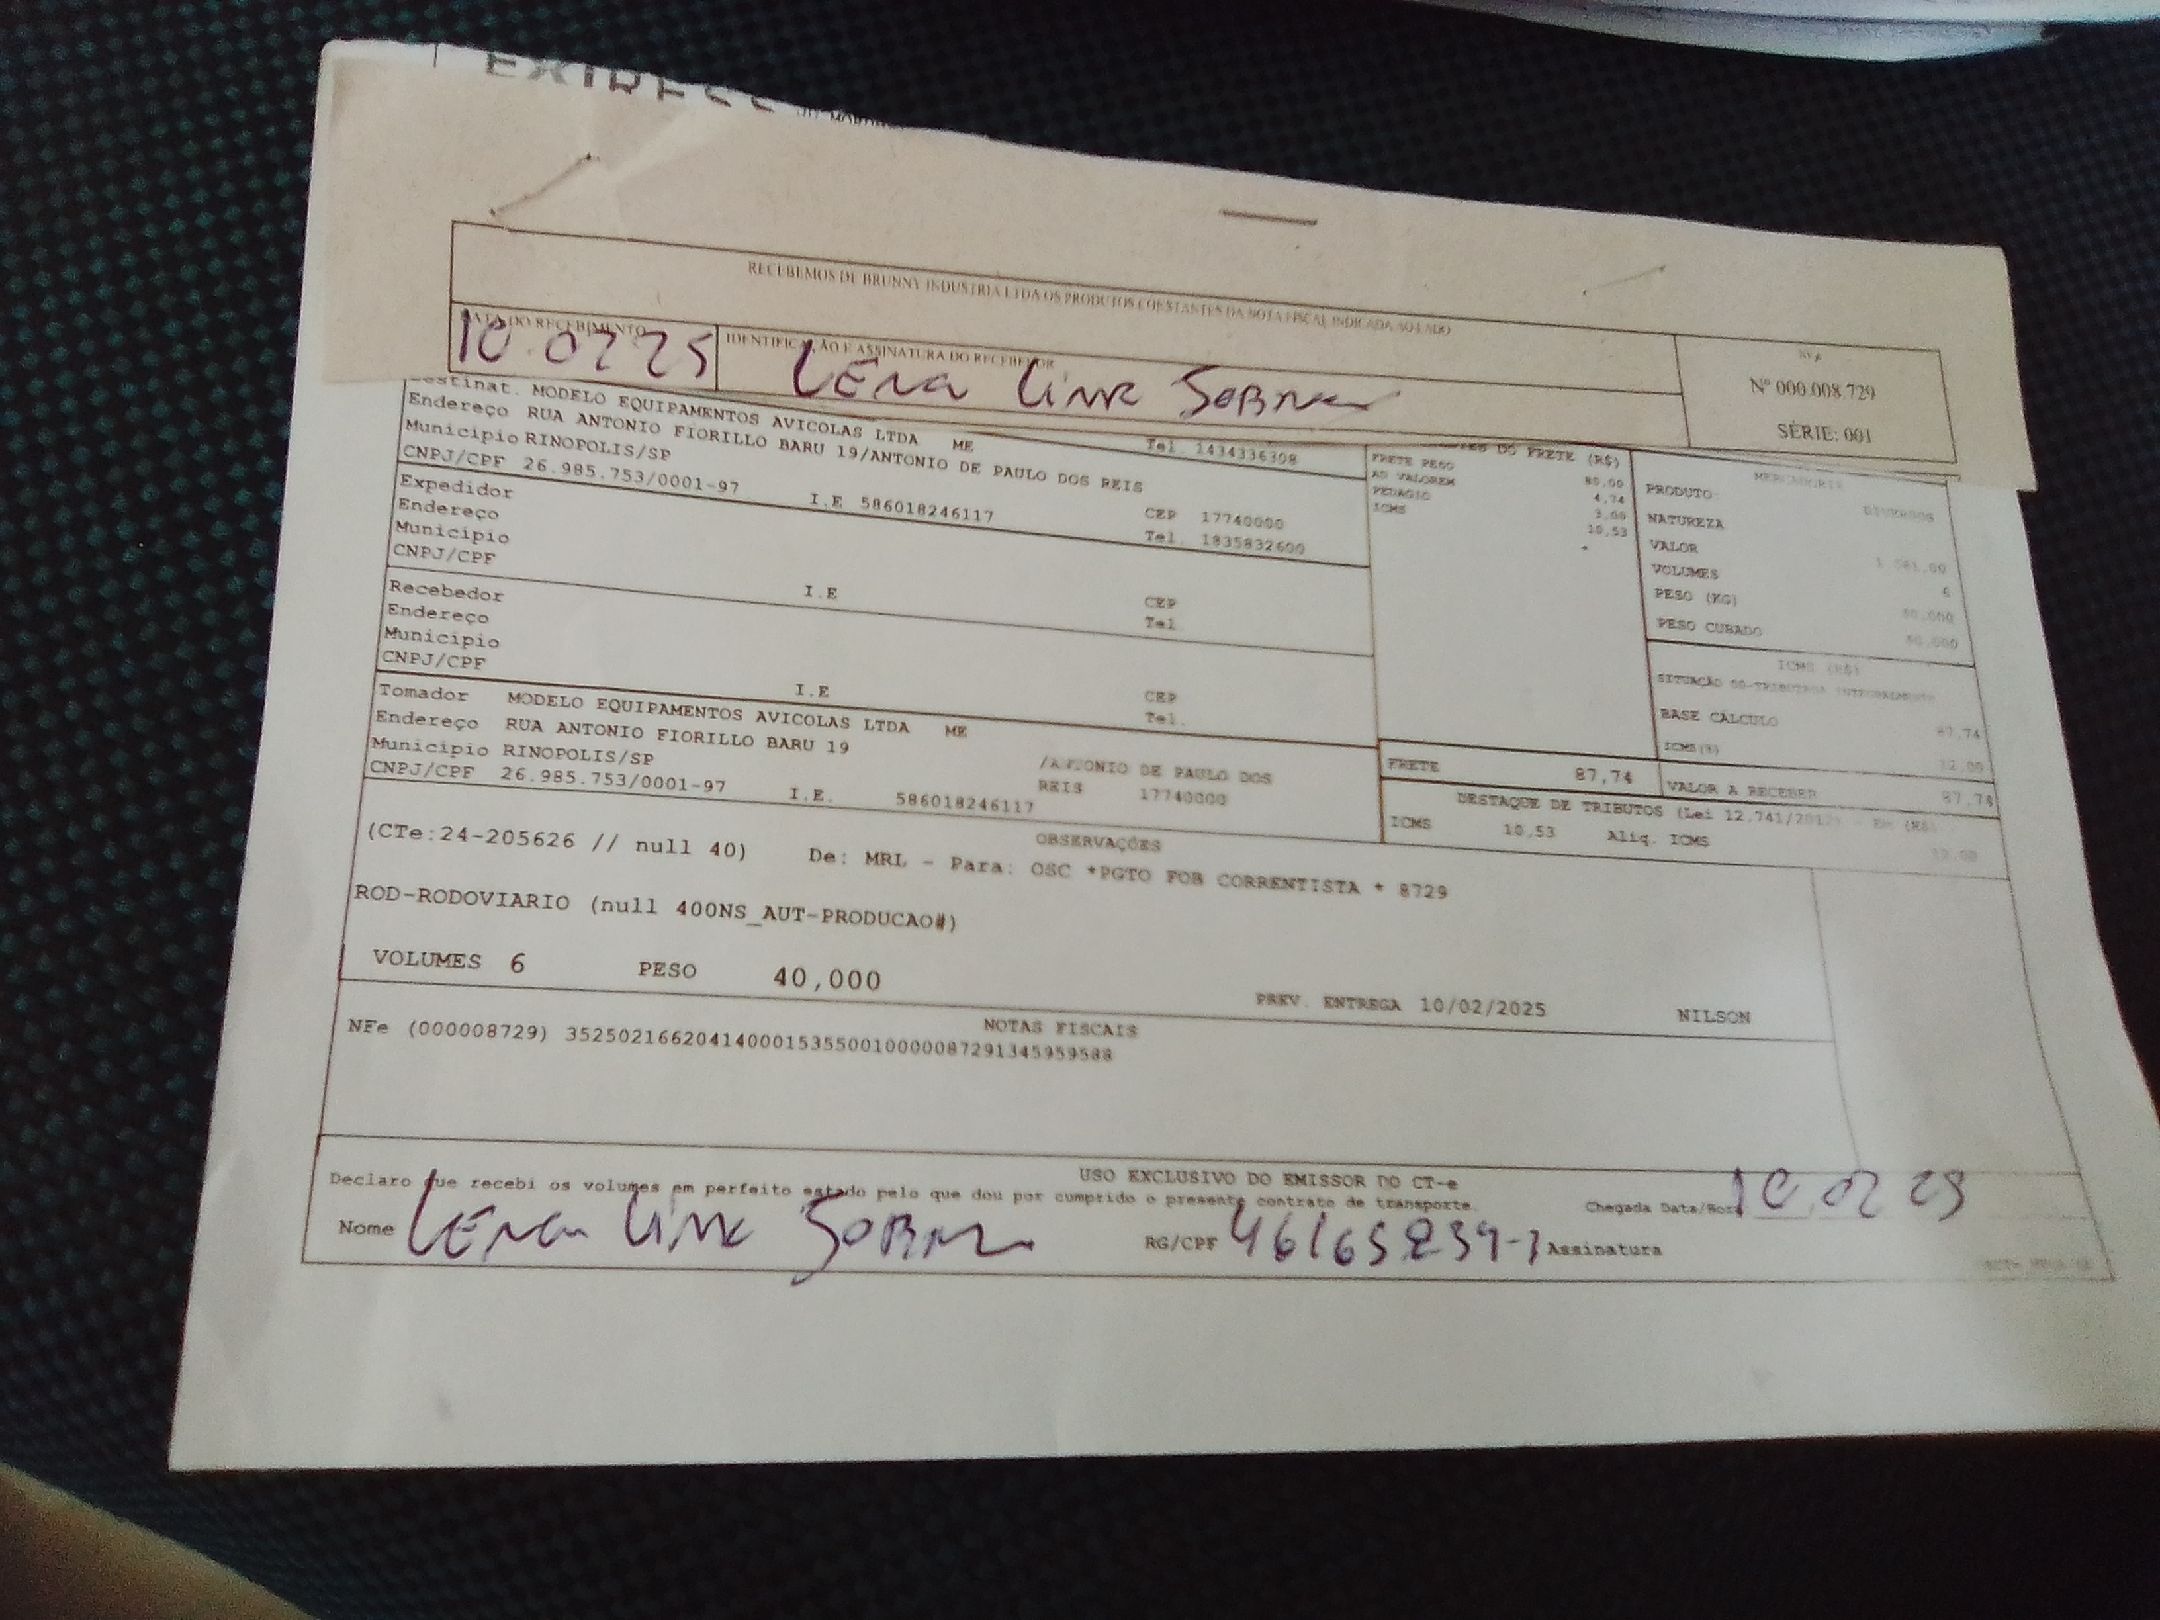 RECEBEMOS DE BRUNNY INDUSTRIA LTDA OS PRODUTOS CONSTANTES DA NOTA FISCAL INDICADA AO LADO
DATA DO RECEBIMENTO
10 02 25
IDENTIFICAÇÃO E ASSINATURA DO RECEBEDOR
NFe
Nº 000.008.729
SÉRIE: 001
Tel. 1434336308
Destinat. MODELO EQUIPAMENTOS AVICOLAS LTDA ME
Endereço RUA ANTONIO FIORILLO BARU 19/ANTONIO DE PAULO DOS REIS
Município RINOPOLIS/SP CEP 17740000
CNPJ/CPF 26.985.753/0001-97 I.E 586018246117 Tel. 1835832600
Expedidor
Endereço
Município CEP
CNPJ/CPF I.E Tel
Recebedor
Endereço
Município CEP
CNPJ/CPF I.E Tel.
Tomador MODELO EQUIPAMENTOS AVICOLAS LTDA ME
Endereço RUA ANTONIO FIORILLO BARU 19 /ANTONIO DE PAULO DOS
Município RINOPOLIS/SP REIS 17740000
CNPJ/CPF 26.985.753/0001-97 I.E. 586018246117
DO FRETE (R$)
FRETE PESO 80,00
AD VALOREM 4,74
PEDAGIO 3,00
ICMS 10,53
MERCADORIA
PRODUTO: DIVERSOS
NATUREZA
VALOR
VOLUMES 6
PESO (KG)
PESO CUBADO
ICMS (R$)
BASE CÁLCULO 87,74
ICMS(%) 12,00
FRETE 87,74
VALOR A RECEBER 87,74
DESTAQUE DE TRIBUTOS (Lei 12.741/2012) - EM (R$)
ICMS 10,53 Aliq. ICMS 12,00
OBSERVAÇÕES
(CTe:24-205626 // null 40) De: MRL - Para: OSC *PGTO FOB CORRENTISTA * 8729
ROD-RODOVIARIO (null 400NS_AUT-PRODUCAO#)
VOLUMES 6 PESO 40,000 PREV. ENTREGA 10/02/2025 NILSON
NOTAS FISCAIS
NFe (000008729) 35250216620414000153550010000087291345959588
USO EXCLUSIVO DO EMISSOR DO CT-e
Declaro que recebi os volumes em perfeito estado pelo que dou por cumprido o presente contrato de transporte.
Chegada Data/Hor 10 02 25
Nome
RG/CPF 46165239-7 Assinatura